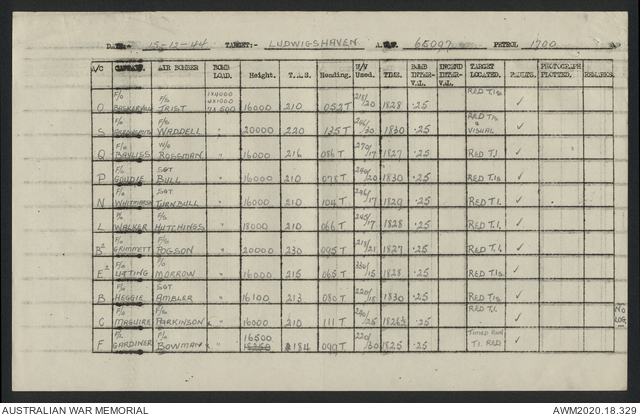 DATE:- 15-12-44 TARGET:- LUDWIGSHAVEN A.U.W. 65097 PETROL 1700
A/C CAPTAIN. AIR BOMBER BOMB LOAD. Height. T.A.S. Heading. W/V Used. TIME. BOMB INTER-VAL. INCEND INTER-VAL. TARGET LOCATED. RESULTS. PHOTOGRAPH PLOTTED. REMARKS.
O F/O F/S TRIST 1x4000 7x500 16000 210 052T 1828 .25 RED T.Is ✓
S F/S WADDELL " 20000 220 135T 1830 .25 RED T/Is & VISUAL ✓
Q F/O BAYLISS W/O ROSSMAN " 16000 216 086T 270/17 1827 .25 RED T.I. ✓
P F/O GOUDIE SGT BULL " 16000 210 078T 1830 .25 RED T.Is ✓
N F/O WHITMARSH SGT TURNBULL " 16000 210 104T 1829 .25 RED T.I. ✓
L WALKER F/S HUTCHINGS " 18000 210 066T 1828 .25 RED T.I. ✓
B² F/O GRIMMETT F/S POGSON " 20000 230 095T 218/21 1827 .25 RED T.I. ✓
E² F/O UTTING MORROW " 16000 215 065T 1828 .25 RED T.Is ✓
B F/O HEGGIE SGT AMBLER " 16100 213 080T 1830 .25 RED T.Is ✓
C F/O MAGUIRE F/S PARKINSON " 16000 210 111T 1826½ .25 RED T.I. ✓ NO LOG
F F/O GARDINER F/O BOWMAN " 16500 184 090T 220/30 1825 .25 TIMED RUN T.I. RED ✓
AUSTRALIAN WAR MEMORIAL AWM2020.18.329